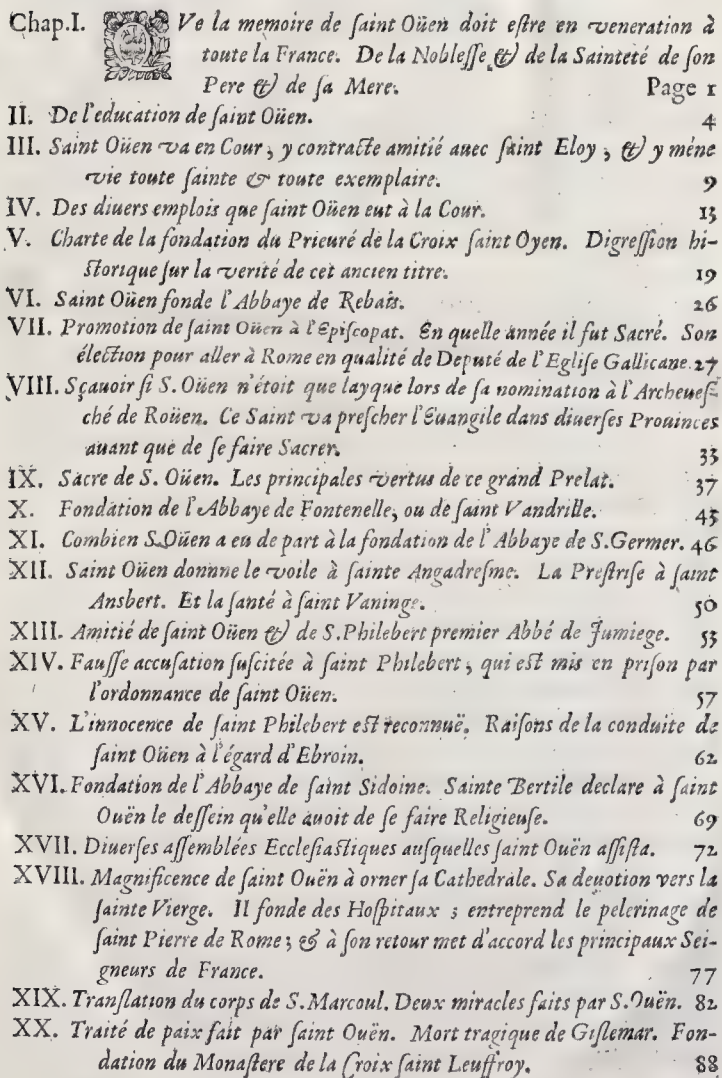 Chap.I. QVe la memoire de ſaint Oüen doit eſtre en veneration à
toute la France. De la Nobleſſe & de la Sainteté de ſon
Pere & de ſa Mere. Page 1
II. De l'education de ſaint Oüen. 4
III. Saint Oüen va en Cour, y contracte amitié auec ſaint Eloy, & y méne
vie toute ſainte & toute exemplaire. 9
IV. Des diuers emplois que ſaint Oüen eut à la Cour. 13
V. Charte de la fondation du Prieuré de la Croix ſaint Oyen. Digreſſion hi-
ſtorique ſur la verité de cet ancien titre. 19
VI. Saint Oüen fonde l'Abbaye de Rebais. 26
VII. Promotion de ſaint Oüen à l'Epiſcopat. En quelle année il fut Sacré. Son
élection pour aller à Rome en qualité de Deputé de l'Egliſe Gallicane. 27
VIII. Sçauoir ſi S. Oüen n'étoit que layque lors de ſa nomination à l'Archeueſ-
ché de Roüen. Ce Saint va preſcher l'Euangile dans diuerſes Prouinces
auant que de ſe faire Sacrer. 33
IX. Sacre de S. Oüen. Les principales vertus de ce grand Prelat. 37
X. Fondation de l'Abbaye de Fontenelle, ou de ſaint Vandrille. 43
XI. Combien S.Oüen a eu de part à la fondation de l'Abbaye de S.Germer. 46
XII. Saint Oüen donnne le voile à ſainte Angadreſme. La Preſtriſe à ſaint
Ansbert. Et la ſanté à ſaint Vaninge. 50
XIII. Amitié de ſaint Oüen & de S.Philebert premier Abbé de Jumiege. 53
XIV. Fauſſe accuſation ſuſcitée à ſaint Philebert, qui eſt mis en priſon par
l'ordonnance de ſaint Oüen. 57
XV. L'innocence de ſaint Philebert eſt reconnuë. Raiſons de la conduite de
ſaint Oüen à l'égard d'Ebroin. 62
XVI. Fondation de l'Abbaye de ſaint Sidoine. Sainte Bertile declare à ſaint
Ouën le deſſein qu'elle auoit de ſe faire Religieuſe. 69
XVII. Diuerſes aſſemblées Eccleſiaſtiques auſquelles ſaint Ouën aſſiſta. 72
XVIII. Magnificence de ſaint Ouën à orner ſa Cathedrale. Sa deuotion vers la
ſainte Vierge. Il fonde des Hoſpitaux ; entreprend le pelerinage de
ſaint Pierre de Rome ; & à ſon retour met d'accord les principaux Sei-
gneurs de France. 77
XIX. Tranſlation du corps de S.Marcoul. Deux miracles faits par S.Ouën. 82
XX. Traité de paix fait par ſaint Ouën. Mort tragique de Giſlemar. Fon-
dation du Monaſtere de la Croix ſaint Leuffroy. 88